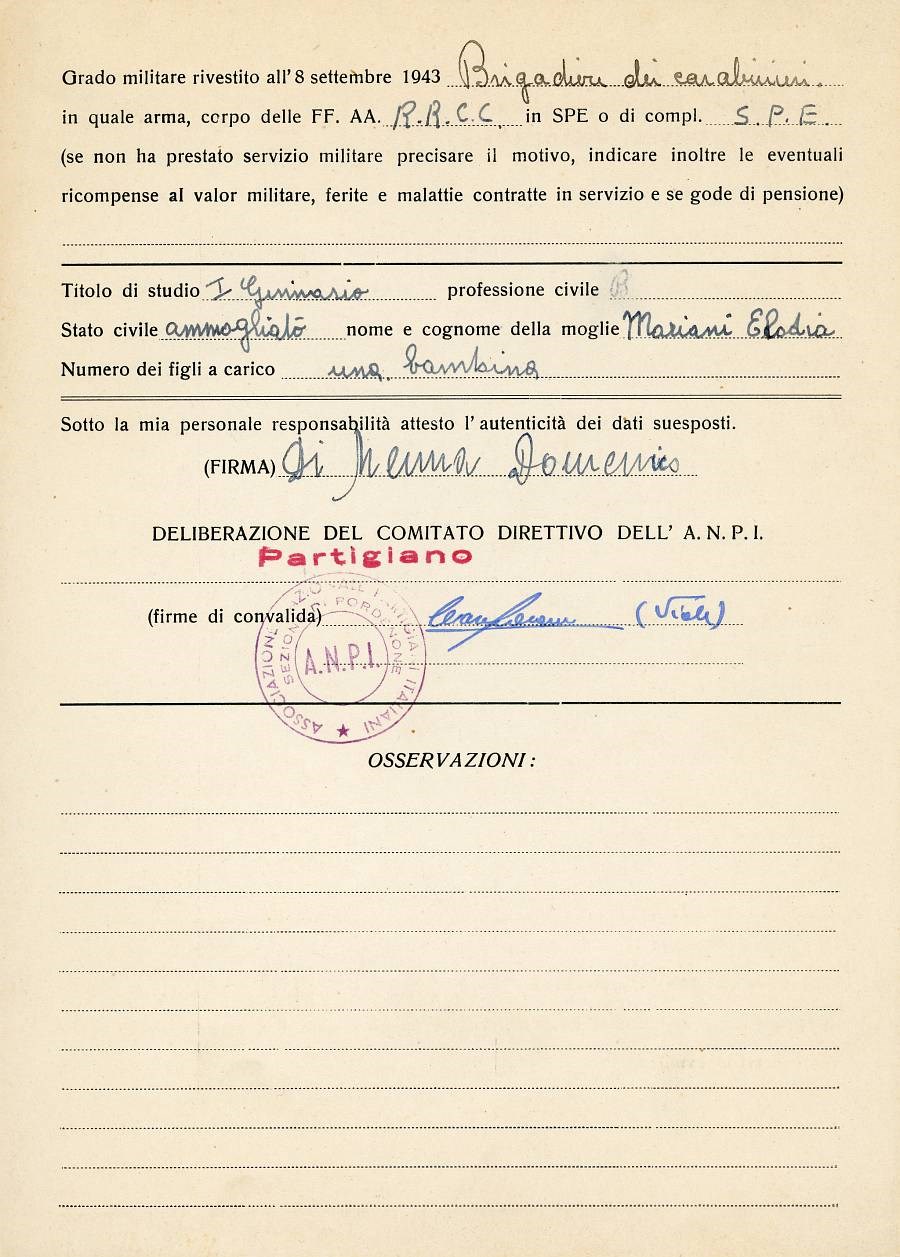 Grado militare rivestito all' 8 settembre 1943 Brigadiere dei carabinieri.
in quale arma, corpo delle FF. AA. R.R.C.C. in SPE o di compl. S. P. E.
(se non ha prestato servizio militare precisare il motivo, indicare inoltre le eventuali
ricompense al valor militare, ferite e malattie contratte in servizio e se gode di pensione)
Titolo di studio I Ginnasio professione civile B
Stato civile ammogliato nome e cognome della moglie Mariani Elodia
Numero dei figli a carico una bambina
Sotto la mia personale responsabilità attesto l' autenticità dei dati suesposti.
(FIRMA) Di Menna Domenico
DELIBERAZIONE DEL COMITATO DIRETTIVO DELL' A. N. P. I.
Partigiano
(firme di convalida)
ASSOCIAZIONE NAZIONALE PARTIGIANI ITALIANI
SEZIONE DI PORDENONE
A.N.P.I.
OSSERVAZIONI :